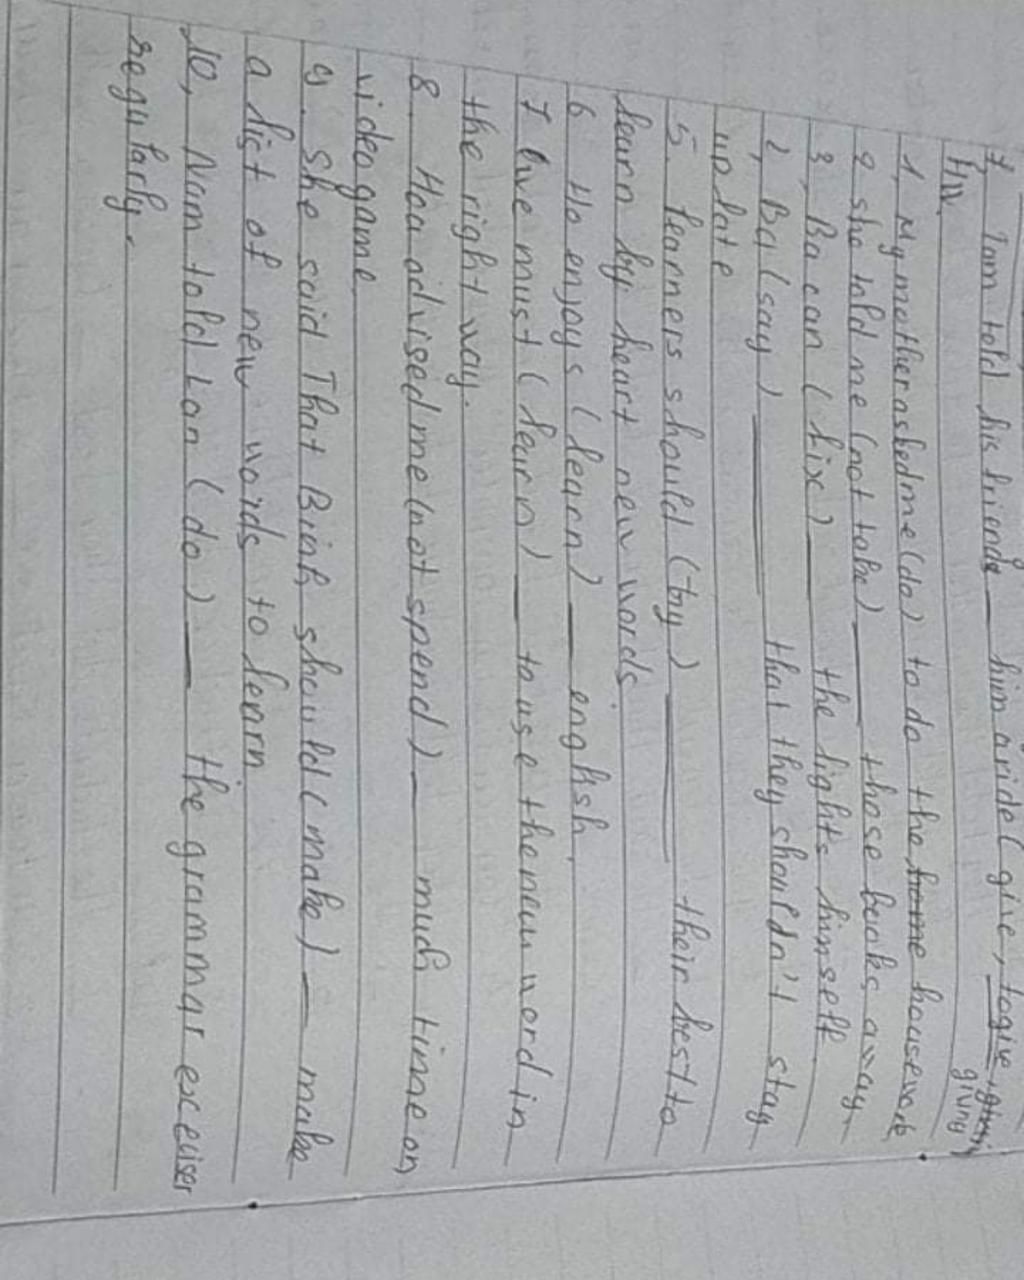 7, Tom told his friends ___ him a ride ( give, to give, giving
giving
IV.
1, My mother asked me (do) to do the home housework
2 she told me (not take) ___ those books away
3, Ba can (fix) ___ the lights himself
2, Ba (say) ___ that they shouldn't stay
up late
5. Learners should (try) ___ their best to
learn by heart new words
6 Ho enjoys (learn) ___ english.
7 We must (learn) ___ to use the new word in
the right way.
8 Hoa advised me (not spend) ___ much time on
video game
9. She said That Binh should (make) ___ make
a list of new words to learn.
10, Nam told Lan (do) ___ the grammar exceiser
regularly.